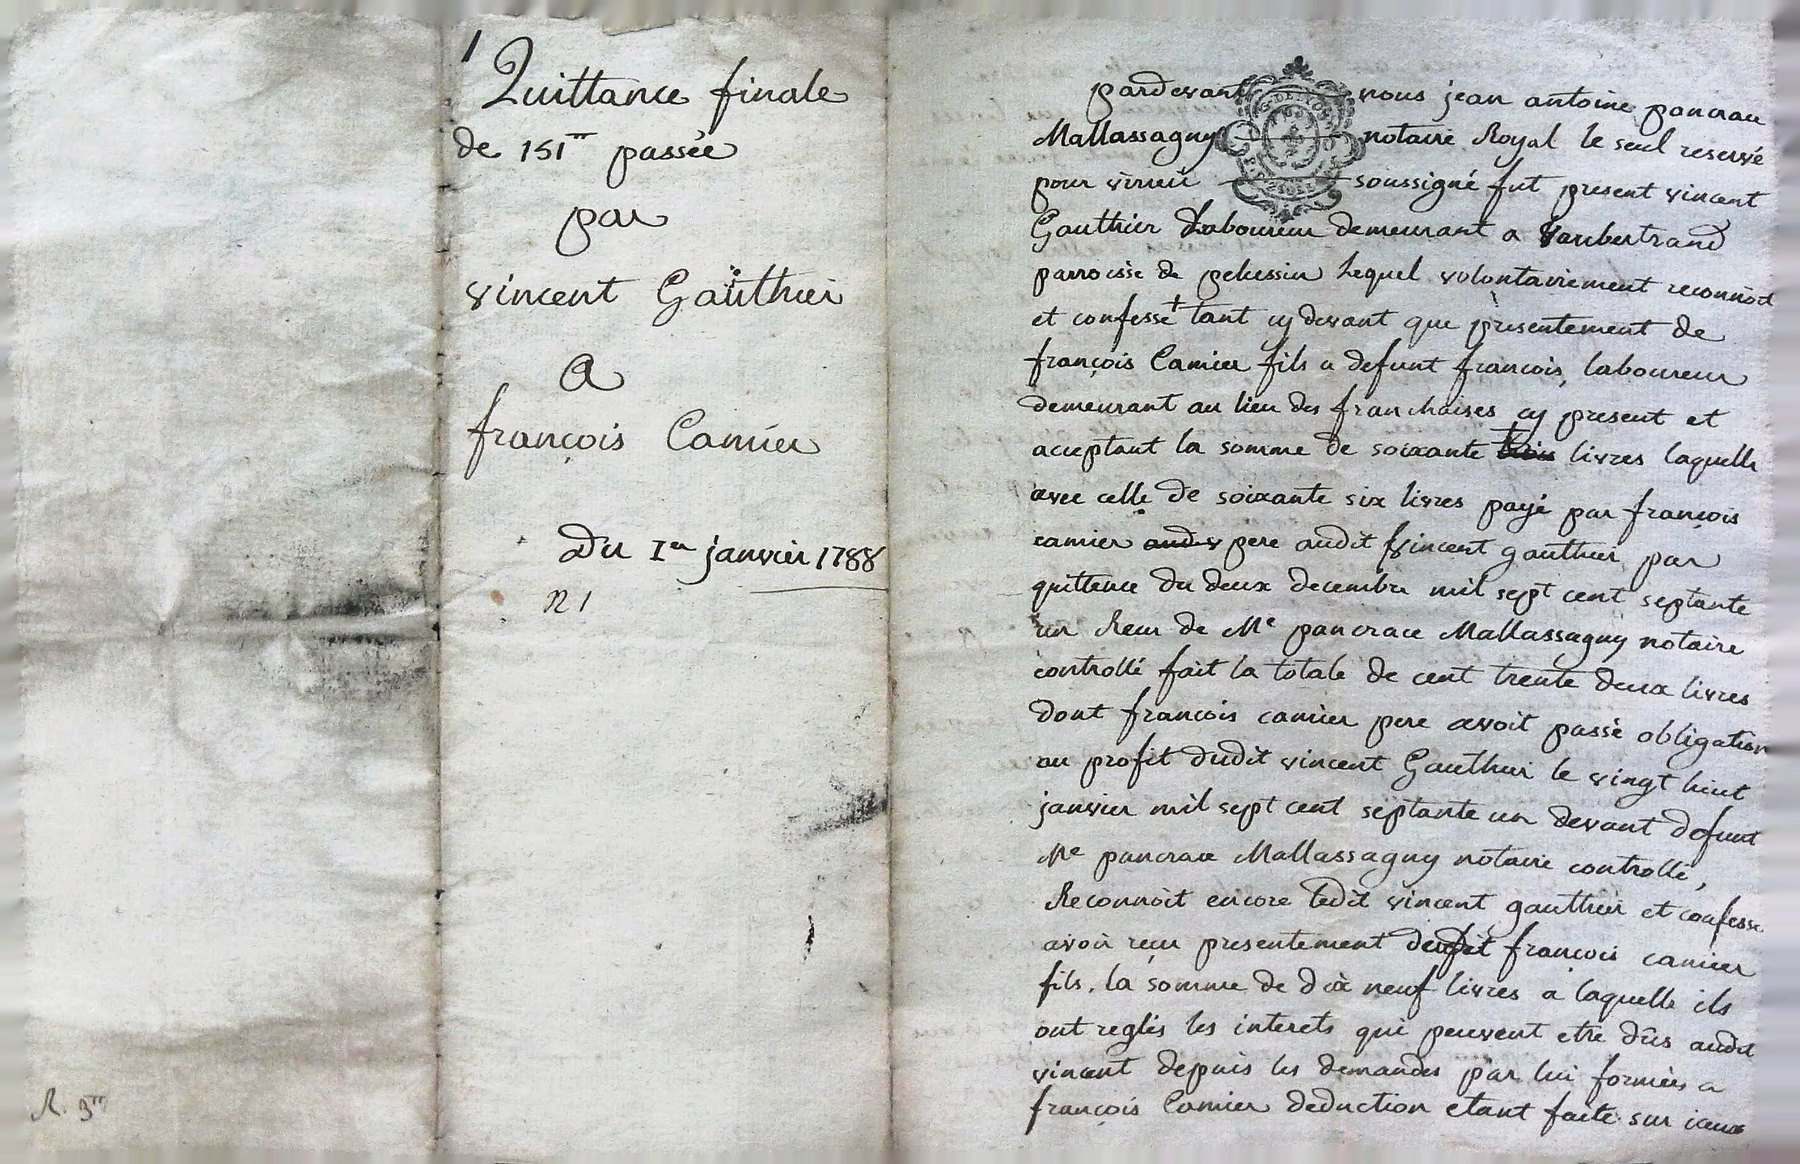 1
Quittance finale
de 151ᵗᵗ passée
par
vincent Gauthier
A
françois Camier
Du 1er janvier 1788
n 1
R. 3ᵗᵗ
pardevant nous jean antoine pancrace
Mallassagny notaire Royal le seul reservé
pour virieu soussigné fut present vincent
Gauthier Laboureur demeurant a Vaubertrand
parroisse de pelussin Lequel volontairement reconnoit
et confesse + tant cy devant que presentement de
françois Camier fils a defunt francois, laboureur
demeurant au lieu des franchises cy present et
acceptant la somme de soixante trois livres laquelle
avec celle de soixante six livres payé par françois
camier pere audit vincent gauthier par
quittence du deux decembre mil sept cent septante
un Reçu de Me pancrace Mallassagny notaire
controllé fait la totale de cent trente deux livres
dont francois camier pere avoit passé obligation
au profit dudit vincent Gauthier le vingt huit
janvier mil sept cent septante un devant defunt
Me pancrace Mallassagny notaire controllé,
Reconnoit encore ledit vincent gauthier et confesse
avoir reçu presentement dudit françois camier
fils. la somme de dix neuf livres a laquelle ils
ont reglés les interets qui peuvent etre dûs audit
vincent depuis les demandes par lui formées a
françois Camier deduction etant faite sur iceux